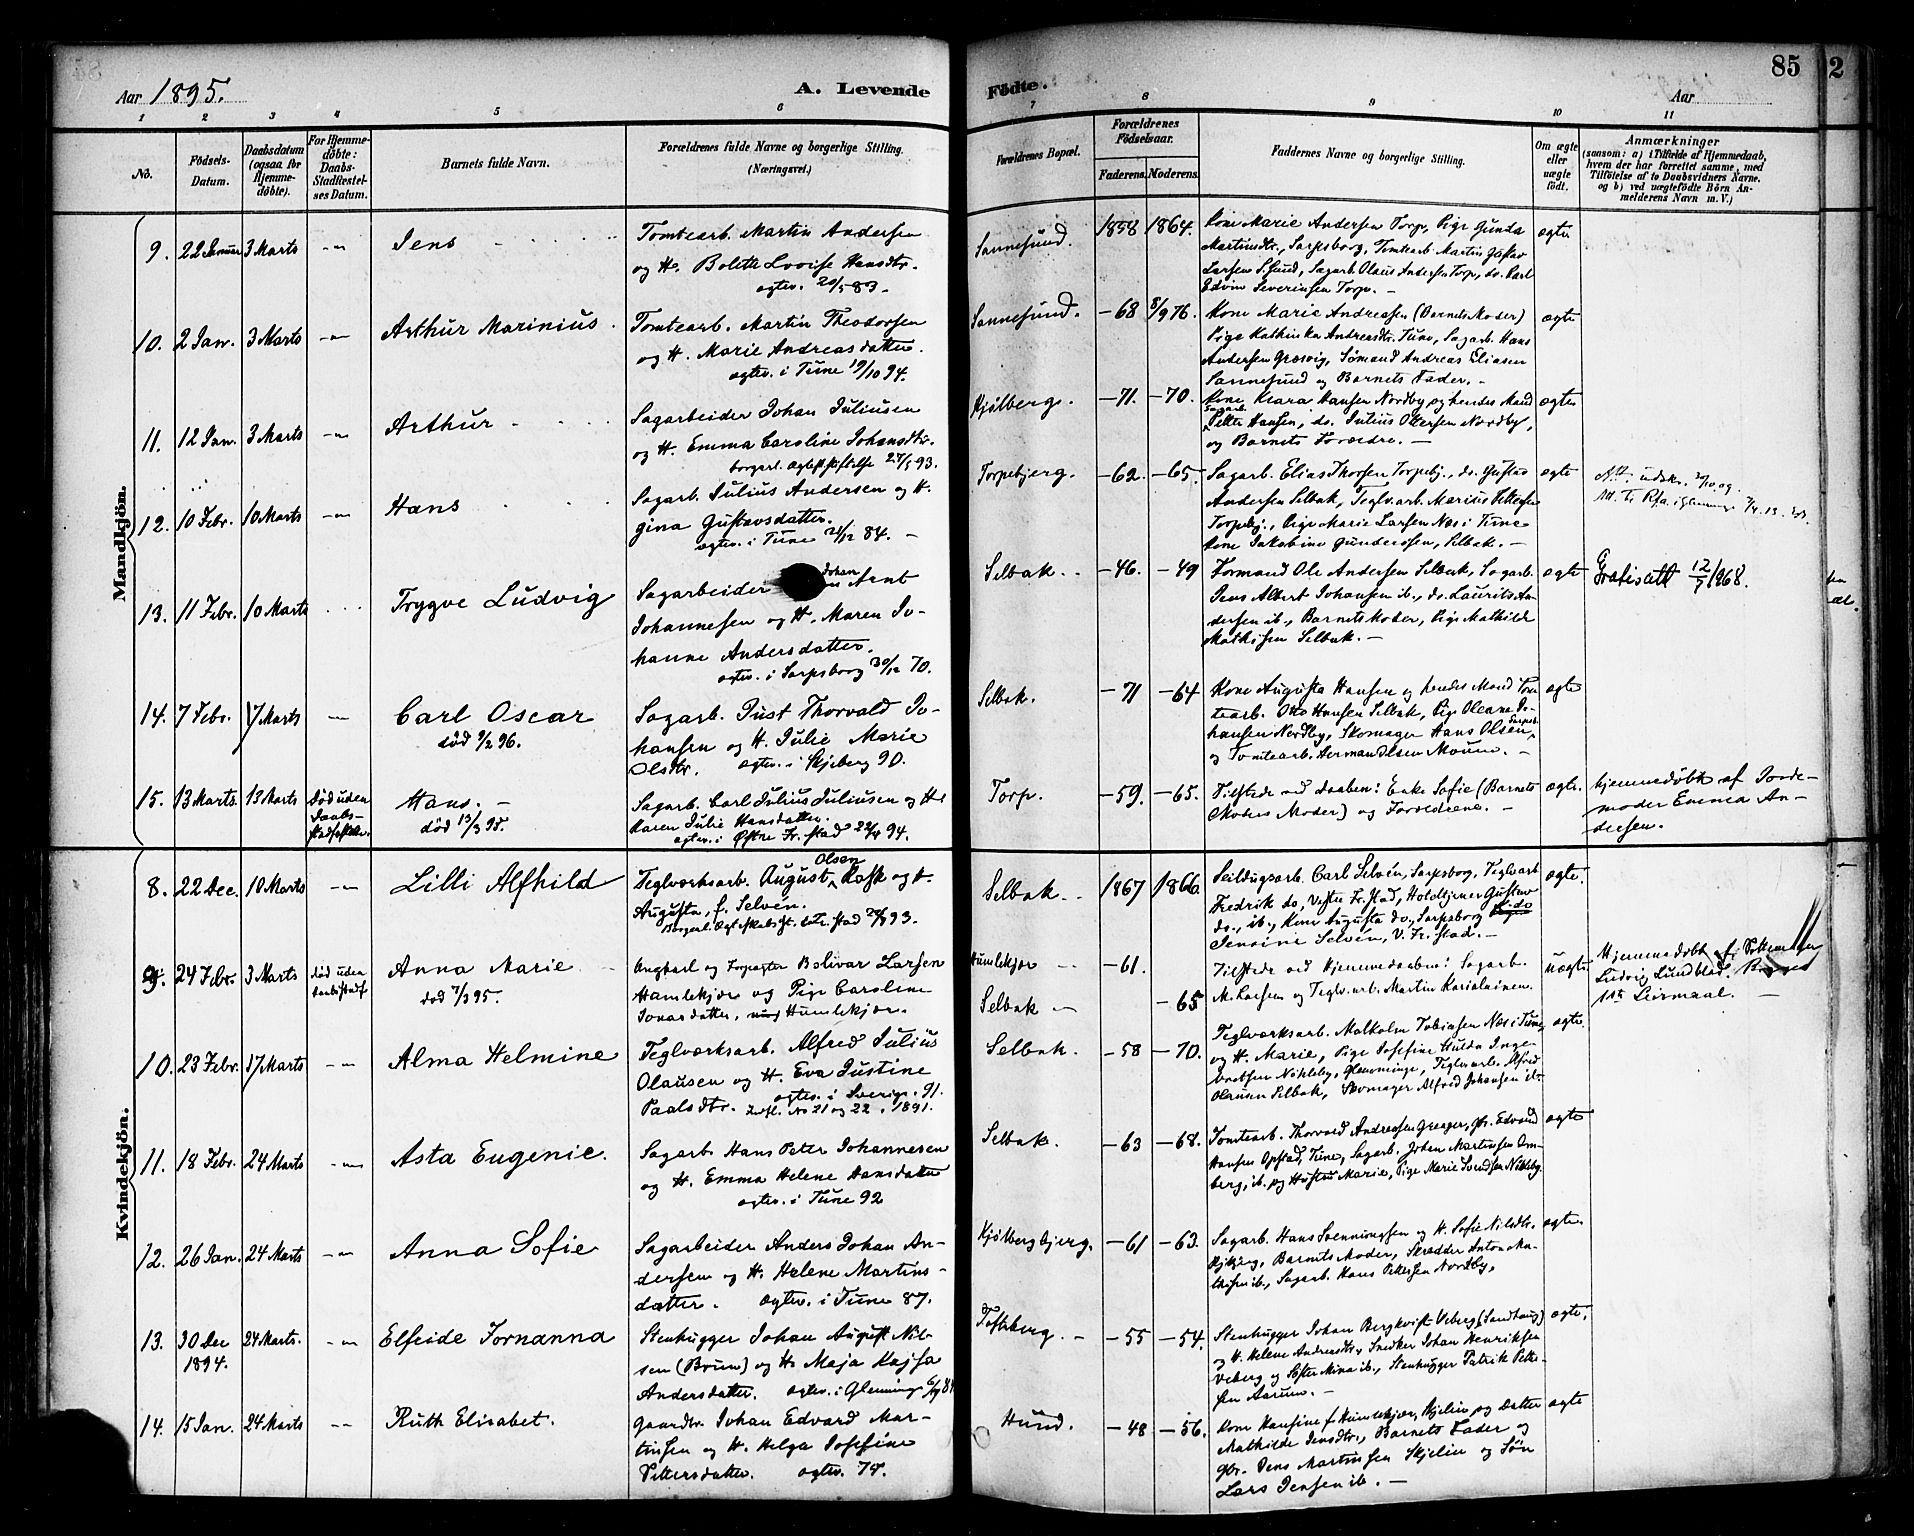 85
2
Aar 1895.
A. Levende
Födte.
Aar
1 2 3 4 5 6 7 8 9 10 11
No.
Födsels-
Datum.
Daabsdatum
(ogsaa för
Hjemme-
döbte).
For Hjemme-
döbte:
Daabs-
Stadfæstel-
ses Datum.
Barnets fulde Navn.
Forældrenes fulde Navne og borgerlige Stilling.
(Næringsvei.)
Forældrenes Bopæl.
Forældrenes
Födselsaar.
Faderens. Moderens.
Faddernes Navne og borgerlige Stilling.
Om ægte
eller
uægte
födt.
Anmærkninger
(saasom: a) i Tilfælde af Hjemmedaab,
hvem der har forrettet samme, med
Tilföielse af to Daabsvidners Navne.
og b) ved uægtefödte Börn An-
melderens Navn m. V.)
Mandkjön.
9. 22 Januar 3 Marts -"- Jens
Tomtearb. Martin Andersen
og H. Bolette Lovise Hansdtr.
ægtev. 20/5 83.-
Sannesund. 1858 1864.
Kone Marie Andersen Torp, Pige Gunda
Martinsdtr., Sarpsborg, Tomtearb. Martin Gustav
Larsen S.sund, Sagarb. Olaus Andersen Torp, do. Carl
Edvin Severinsen Torp. -
ægte
10. 2 Jan. 3 Marts -"- Arthur Marinius.
Tomtearb. Martin Theodorsen
og H. Marie Andreasdatter.
ægtev. i Tune 19/10 94.
Sannesund. -68 8/9 76.
Kone Marie Andreasen (Barnets Moder)
Pige Kathinka Andreasdtr. Tune, Sagarb. Hans
Andersen Græsvig, Sømand Andreas Eliasen
Sannesund og Barnets Fader. -
ægte
11. 12 Jan. 3 Marts -"- Arthur
Sagarbeider Johan Juliusen
og H. Emma Caroline Johansdtr.
borgerl. Ægteskstiftelse 27/5 93.
Kjølberg. -71. -70.
Kone Klara Hansen Nordby og hendes Mand
Sagarb. Petter Hansen, do. Julius Ottersen Nordby,
og Barnets Forældre. -
ægte
12. 10 Febr. 10 Marts -"- Hans
Sagarb. Julius Andersen og H.
Gina Gustavsdatter.
ægtev. i Tune 21/12 84. -
Torpebjerg. -62. -65.
Sagarb. Elias Thorsen Torpebj., do. Gustav
Andersen Selbak, Teglv.arb. Marius Pettersen
Torpebj., Pige Marie Larsen Næs i Tune
Kone Jakobine Gundersen, Selbak. -
ægte
13. 11 Febr. 10 Marts Trygve Ludvig
Sagarbeider Johan Arnt
Johannesen og H. Maren Jo-
hanne Andersdatter.
ægtev. i Sarpsborg 30/12 70.
Selbak. -46. -49
Formand Ole Andersen Selbak, Sagarb.
Jens Albert Johansen ib., do. Laurits An-
dersen ib., Barnets Moder, Pige Mathilde
Mathisen Selbak. -
ægte
Gratisatt 12/7 1968.
14. 7 Febr. 17 Marts -"- Carl Oscar
død 9/2 96.
Sagarb. Just Thorvald Jo-
hansen og H. Julie Marie
Olsdtr. ægtev. i Skjeberg 90.
Selbak. -71 -64
Kone Augusta Hansen og hendes Mand Tom-
tearb. Otto Hansen Selbak, Pige Oleane Jo-
hansen Nordby, Skomager Hans Olsen,
og Tomtearb. Herman Olsen Moum. -
ægte
15. 13 Marts. 13 Marts Død uden
Daabs-
stadfæstelse.
Hans. -
død 13/3 95.
Sagarb. Carl Julius Juliusen og H.
Karen Julie Hansdatter.
ægtev. i Østre Fr.stad 22/4 94.
Torp. -59. -65.
Tilstede ved Daaben: Enke Sofie (Barnets
Moders Moder) og Forældrene. -
ægte.
Hjemmedøbt af Jorde-
moder Emma An-
dersen.
Kvindekjön.
8. 22 Dec. 10 Marts -"- Lilli Alfhild
Teglværksarb. August Olsen Rask og H.
Augusta, f. Selvén.
Borgerl. Ægteskabsst. i Fr.stad 93.
Selbak. 1867 1866.
Seildugsarb. Carl Selvén, Sarpsborg, Teglvarb.
Fredrik do, Vestre Fr.stad, Holdtjener Gustav
do., ib., Kone Augusta do., Sarpsborg do
Jensine Selvén, V. Fr.stad. -
ægte.
9. 24 Febr. 3 Marts død uden
daabsstadf.
Anna Marie
død 7/3 95.
Ungkarl og Forpagter Bolivar Larsen
Humlekjær og Pige Caroline
Jonasdatter, Humlekjær.
Humlekjær -61.
Selbak - -65
Tilstede ved Hjemmedaaben: Sagarb.
M. Larsen og Teglv.arb. Martin Karialainen.
uægte.
Hjemmedøbt af
Ludvig Lundblad.
1ste Leirmaal. -
10. 23 Febr. 17 Marts -"- Alma Helmine
Teglværksarb. Alfred Julius
Olausen og H. Eva Justine
Paalsdtr. ægtev. i Sverige. 91.
No 21 og 22. 1891.
Selbak. -58 -70.
Teglværksarb. Malkolm Tobiasen Næs i Tune
og H. Marie, Pige Josefine Hulda Inge-
bretsen Nøkleby, Glemminge, Teglv.arb. Alfred
Olausen Selbak, Skomager Alfred Johansen ib.
ægte.
11. 18 Febr. 24 Marts -"- Asta Eugenie.
Sagarb. Hans Peter Johannesen
og H. Emma Helene Hansdatter
ægtev. i Tune 92
Selbak. -63 -68.
Tomtearb. Thorvald Andreasen Greager, Gbr. Edvard
Hansen Opstad, Tune, Sagarb. Johan Martinsen Om-
berg, ib. og Hustru Marie, Pige Marie Svendsen Nøkleby
ægte
12. 26 Jan. 24 Marts -"- Anna Sofie
Sagarbeider Anders Johan An-
dersen og H. Helene Martins-
datter. Ægtev. i Tune 87.
Kjølbergbjerg. -61 -63.
Sagarb. Hans Svenningsen og H. Sofie Nilsdtr.
Barnets Moder, Skrædder Anton Ma-
thisen ib., Sagarb. Hans Pettersen Nordby.
ægte.
13. 30 Dec
1894.
24 Marts. -"- Elfride Jornanna
Stenhugger Johan August Nil-
sen (Brun) og H. Maja Kajsa
Andersdatter. ægtev. i Glemminge
Tofteberg. - -55 -54.
Stenhugger Johan Bergkvist Veberg (Sandhaug)
og H. Helene Andreasdtr., Snedker Johan Henriksen
Veberg og Søster Mina ib., Stenhugger Patrik Peter-
sen Aarum. -
ægte.
14. 15 Jan. 24 Marts -"- Ruth Elisabet.
Gaardbr. Johan Edvard Mar-
tinsen og H. Helga Josefine
Pettersdatter. ægtev. 75.
Hund. -48 -56.
Kone Hansine f. Humlekjær, Skjelin og Datter
Mathilde Jensdtr., Barnets Fader og
Gbr. Jens Martinsen Skjelin og Søn
Lars Jensen ib. -
ægte